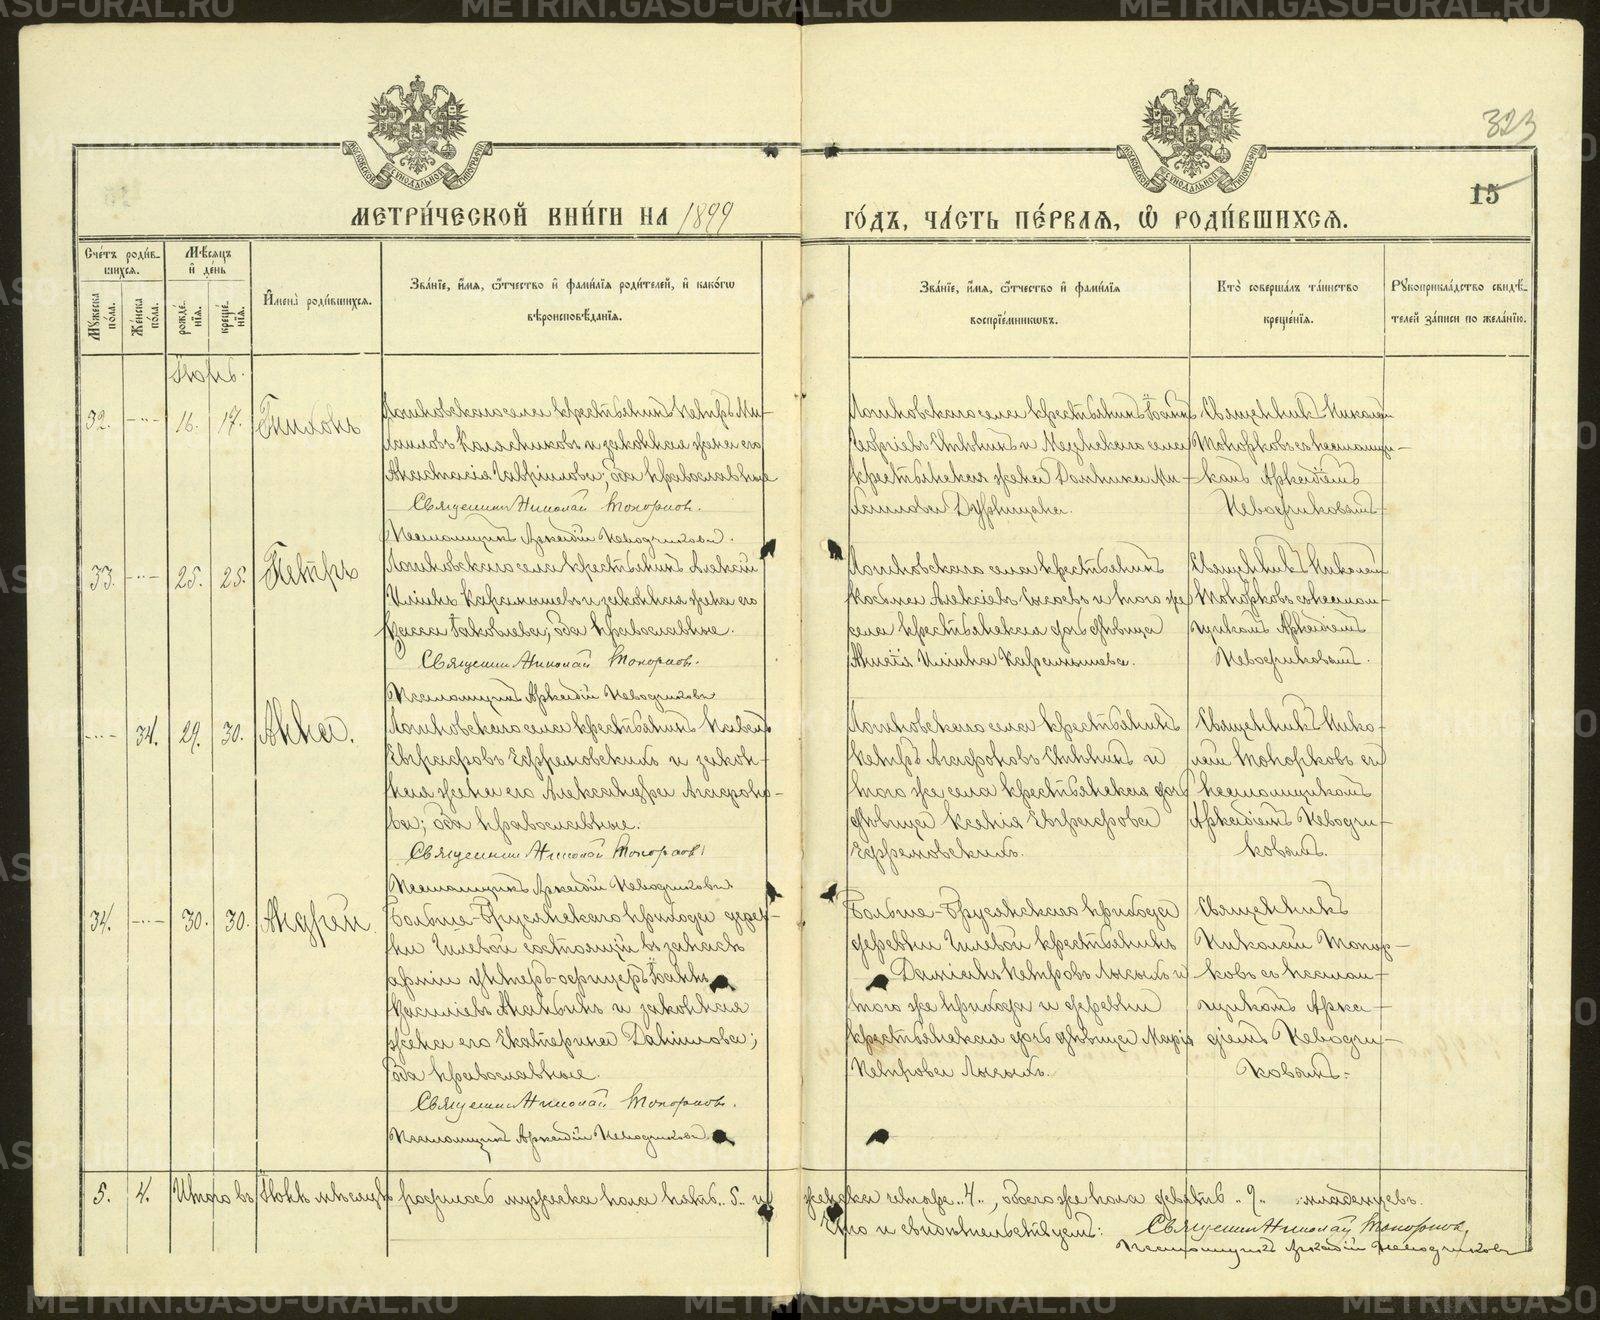 323
15
МЕТРИ́ЧЕСКОЙ КНИ́ГИ НА 1899
ГО́ДЪ, ЧА́СТЬ ПЕ́РВАѦ, Ѡ҆ РОДИ́ВШИХСѦ.
Сче́тъ роди́в-
шихсѧ.
Мꙋжеска по́ла.
Же́нска по́ла.
Мѣ́сѧцъ и҆ де́нь
рожде́нїѧ.
креще́нїѧ.
И҆мена̀ роди́вшихсѧ.
Зва́нїе, и҆́мѧ, ѻ҆́тчество и҆ фами́лїѧ роди́телей, и҆ како́гѡ
вѣроисповѣ́данїѧ.
Зва́нїе, и҆́мѧ, ѻ҆́тчество и҆ фами́лїѧ
воспрїе́мникѡвъ.
Кто̀ соверша́лъ та́инство
креще́нїѧ.
Рꙋкоприкла́дство свидѣ́-
телей за́писи по жела́нїю.
Іюнь.
32. 16. 17. Тихонъ
Логиновскаго села крестьянинъ Петръ Ми-
хаиловъ и законная жена его
Анастасія Гаврiилова; оба православные
Священникъ Николай Топорковъ.
Псаломщикъ Аркадій Неводчиковъ.
Логиновскаго села крестьянинъ Іоаннъ
Георгіевъ и села
крестьянская жена Домника Ми-
хаилова
Священникъ Николай
Топорковъ съ псаломщи-
комъ Аркадіемъ
Неводчиковымъ.
33. 25. 25. Петръ
Логиновскаго села крестьянинъ Алексій
Иліинъ Карамышевъ и законная жена его
Васса Іаковлева; оба православные.
Священникъ Николай Топорковъ.
Псаломщикъ Аркадій Неводчиковъ
Логиновскаго села крестьянинъ
Косьма Алексіевъ и того же
села крестьянская дочь дѣвица
Иліина Карамышева.
Священникъ Николай
Топорковъ съ псалом-
щикомъ Аркадіемъ
Неводчиковымъ.
34. 29. 30. Анна.
Логиновскаго села крестьянинъ Павелъ
Евграфовъ Ефремовскихъ и закон-
ная жена его Александра Агафоно-
ва; оба православные.
Священникъ Николай Топорковъ.
Псаломщикъ Аркадій Неводчиковъ.
Логиновскаго села крестьянинъ
Петръ Агафоновъ и
того же села крестьянская дочь
дѣвица Ксенія Евграфова
Ефремовскихъ.
Священникъ Нико-
лай Топорковъ съ
псаломщикомъ
Аркадіемъ Неводчи-
ковымъ.
34. 30. 30. Андрей
Больше-Брусянскаго прихода дерев-
ни Гилевой состоящій въ запасѣ
арміи унтеръ-офицеръ Іоаннъ
Василіевъ и законная
жена его Екатерина Даніилова;
оба православные.
Священникъ Николай Топорковъ.
Псаломщикъ Аркадій Неводчиковъ
Больше-Брусянскаго прихода
деревни Гилевой крестьянинъ
Даміанъ Петровъ Лысыхъ и
того же прихода и деревни
крестьянская дочь дѣвица Марія
Петрова Лысыхъ.
Священникъ
Николай Топор-
ковъ съ псалом-
щикомъ Арка-
діемъ Неводчи-
ковымъ.
5. 4. Итого въ Іюнѣ мѣсяцѣ родилось мужеска пола пять „5„ и женска четыре „4„, обоего же пола девять „9„ младенцевъ.
свидѣтельствуемъ: Священникъ Николай Топорковъ,
Псаломщикъ Аркадій Неводчиковъ
METRIKI.GASU-URAL.RU